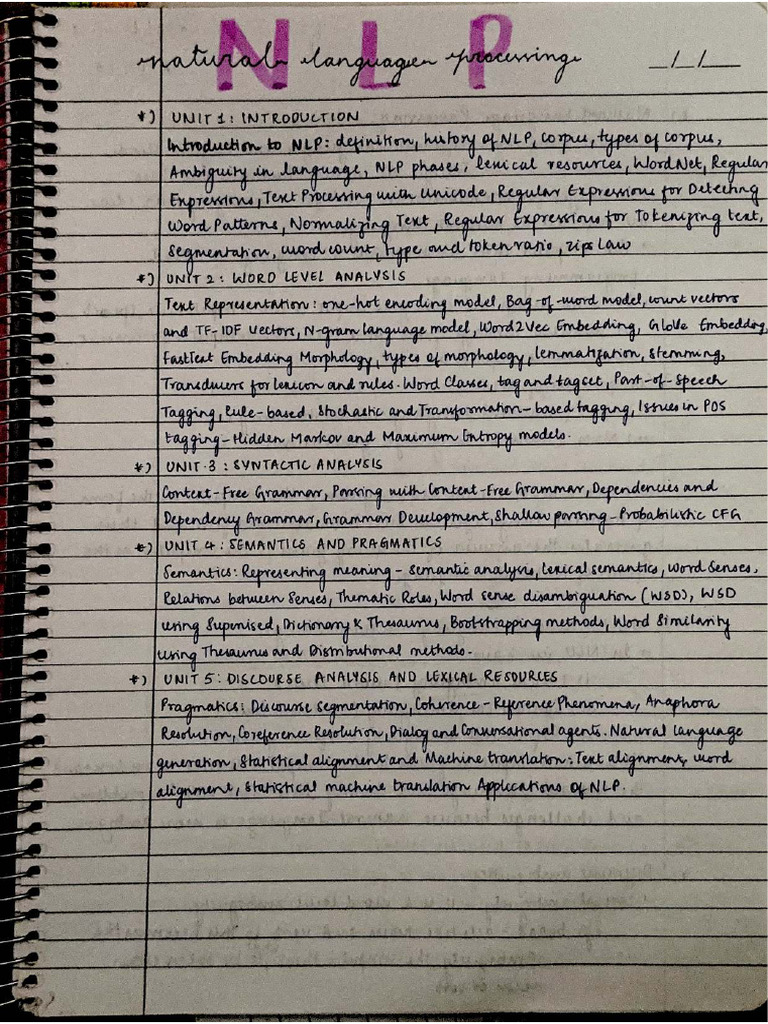 NLP
natural language processing
_/_/_
*) UNIT 1: INTRODUCTION
Introduction to NLP: definition, history of NLP, corpus, types of corpus,
Ambiguity in language, NLP phases, lexical resources, WordNet, Regular
Expressions, Text Processing with Unicode, Regular Expressions for Detecting
Word Patterns, Normalizing Text, Regular Expressions for Tokenizing text,
segmentation, word count, type and token ratio, zips law
*) UNIT 2: WORD LEVEL ANALYSIS
Text Representation: one-hot encoding model, Bag-of-word model, count vectors
and TF-IDF vectors, N-gram language model, Word2Vec Embedding, GloVe Embedding,
FastText Embedding Morphology, types of morphology, lemmatization, stemming,
Transducers for lexicon and rules. Word Classes, tag and tagset, Part-of-speech
Tagging, Rule-based, Stochastic and Transformation-based tagging, Issues in POS
tagging-Hidden Markov and Maximum Entropy models.
*) UNIT 3: SYNTACTIC ANALYSIS
Context-Free Grammar, Parsing with Context-Free Grammar, Dependencies and
Dependency Grammar, Grammar Development, Shallow parsing-Probabilistic CFG
*) UNIT 4: SEMANTICS AND PRAGMATICS
Semantics: Representing meaning - semantic analysis, lexical semantics, Word Senses,
Relations between Senses, Thematic Roles, Word sense disambiguation (WSD), WSD
using Supervised, Dictionary & Thesaurus, Bootstrapping methods, Word Similarity
using Thesaurus and Distributional methods.
*) UNIT 5: DISCOURSE ANALYSIS AND LEXICAL RESOURCES
Pragmatics: Discourse segmentation, Coherence - Reference Phenomena, Anaphora
Resolution, Coreference Resolution, Dialog and Conversational agents. Natural language
generation, Statistical alignment and Machine translation: Text alignment, word
alignment, Statistical machine translation Applications of NLP.